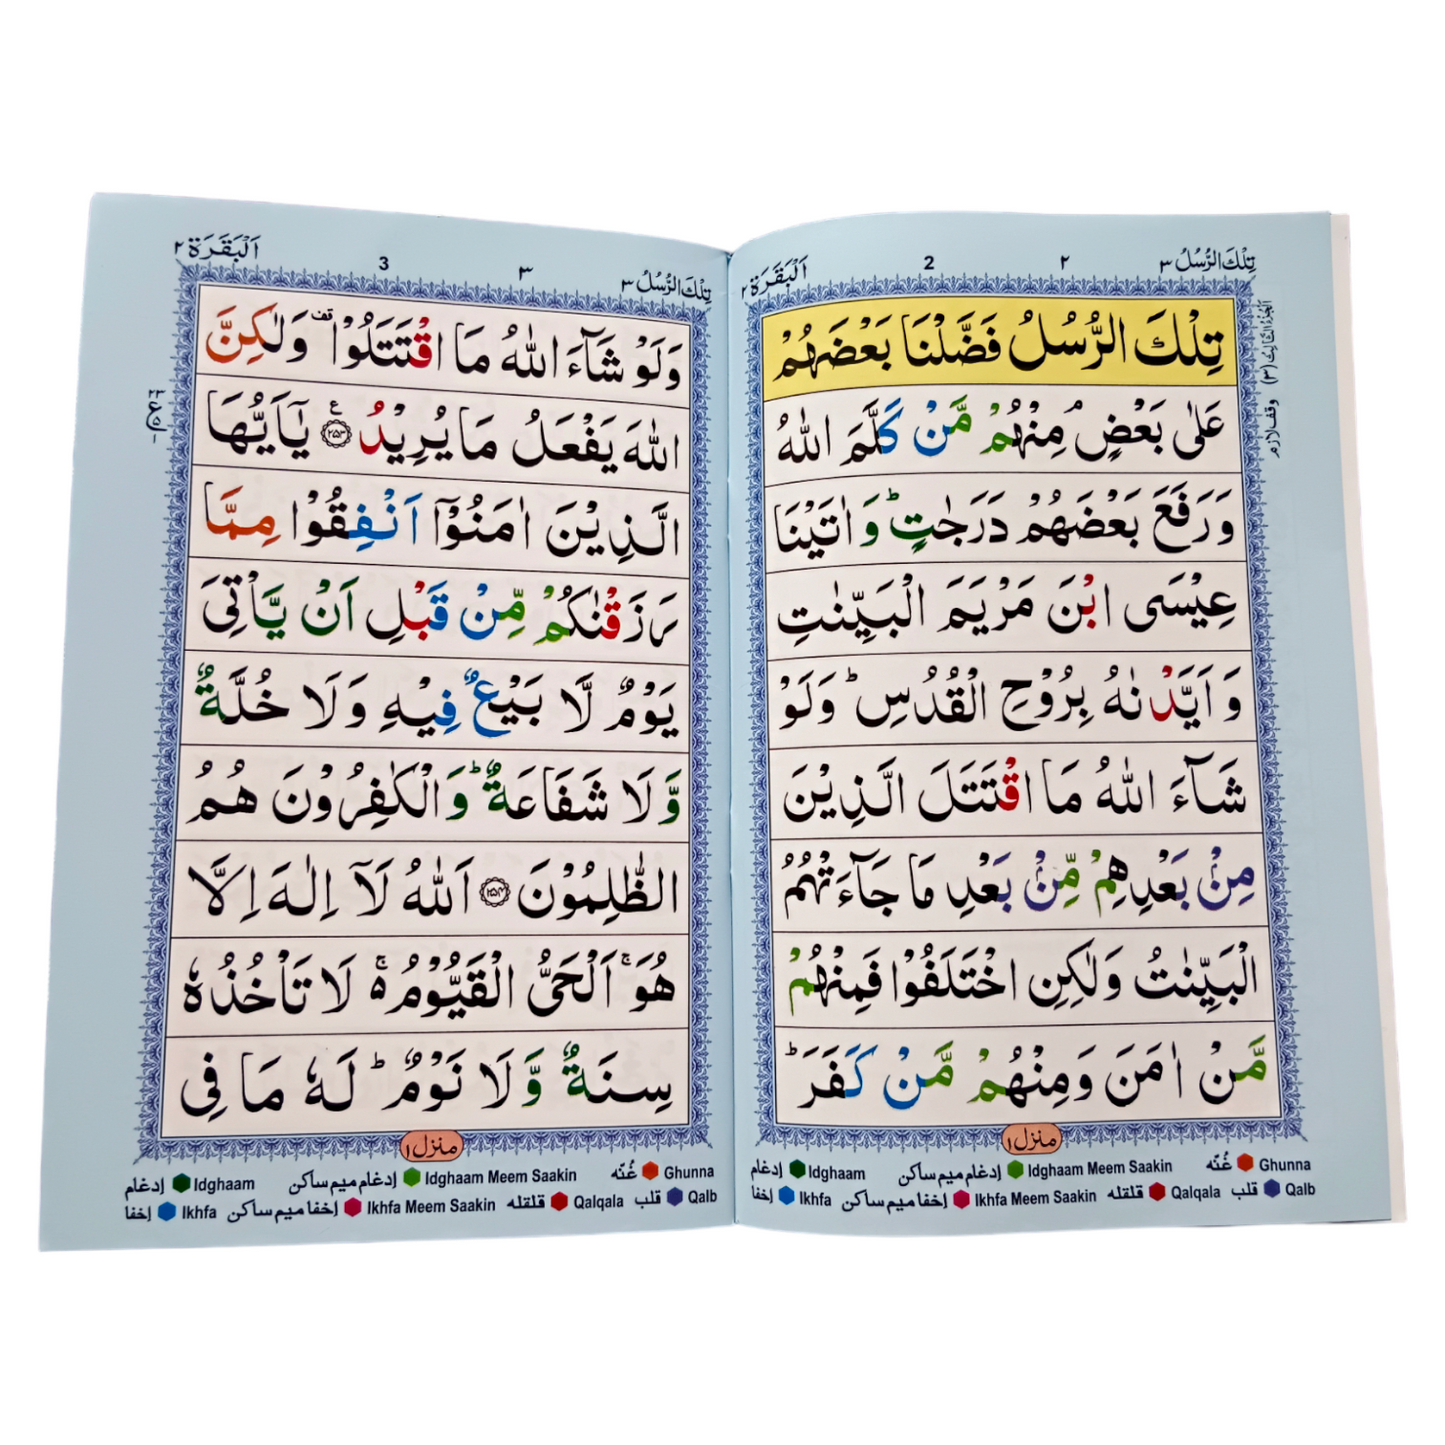 تِلْكَ الرُّسُلُ ٣
٢
2
اَلْبَقَرَة ٢
اَلْجُزْءُ الثَّالِثُ (٣)
وقف لازم
تِلْكَ الرُّسُلُ فَضَّلْنَا بَعْضَهُمْ
عَلٰى بَعْضٍ ۘ مِنْهُمْ مَّنْ كَلَّمَ اللّٰهُ
وَرَفَعَ بَعْضَهُمْ دَرَجٰتٍ ؕ وَ اٰتَيْنَا
عِيْسَى ابْنَ مَرْيَمَ الْبَيِّنٰتِ
وَ اَيَّدْنٰهُ بِرُوْحِ الْقُدُسِ ؕ وَلَوْ
شَآءَ اللّٰهُ مَا اقْتَتَلَ الَّذِيْنَ
مِنْۢ بَعْدِهِمْ مِّنْۢ بَعْدِ مَا جَآءَتْهُمُ
الْبَيِّنٰتُ وَلٰكِنِ اخْتَلَفُوْا فَمِنْهُمْ
مَّنْ اٰمَنَ وَمِنْهُمْ مَّنْ كَفَرَ ؕ
منزل ١
Ghunna غُنّه Idghaam Meem Saakin إدغام ميم ساكن Idghaam إدغام
Qalb قلب Qalqala قلقله Ikhfa Meem Saakin إخفا ميم ساكن Ikhfa إخفا
تِلْكَ الرُّسُلُ ٣
٣
3
اَلْبَقَرَة ٢
وَلَوْ شَآءَ اللّٰهُ مَا اقْتَتَلُوْا قف وَلٰكِنَّ
اللّٰهَ يَفْعَلُ مَا يُرِيْدُ ع ٢٥٣ يٰۤاَيُّهَا
الَّذِيْنَ اٰمَنُوْۤا اَنْفِقُوْا مِمَّا
رَزَقْنٰكُمْ مِّنْ قَبْلِ اَنْ يَّاْتِيَ
يَوْمٌ لَّا بَيْعٌ فِيْهِ وَلَا خُلَّةٌ
وَّلَا شَفَاعَةٌ ؕ وَالْكٰفِرُوْنَ هُمُ
الظّٰلِمُوْنَ ٢٥٤ اَللّٰهُ لَاۤ اِلٰهَ اِلَّا
هُوَ ۚ اَلْحَيُّ الْقَيُّوْمُ ۚ لَا تَاْخُذُهٗ
سِنَةٌ وَّلَا نَوْمٌ ؕ لَهٗ مَا فِي
منزل ١
Ghunna غُنّه Idghaam Meem Saakin إدغام ميم ساكن Idghaam إدغام
Qalb قلب Qalqala قلقله Ikhfa Meem Saakin إخفا ميم ساكن Ikhfa إخفا